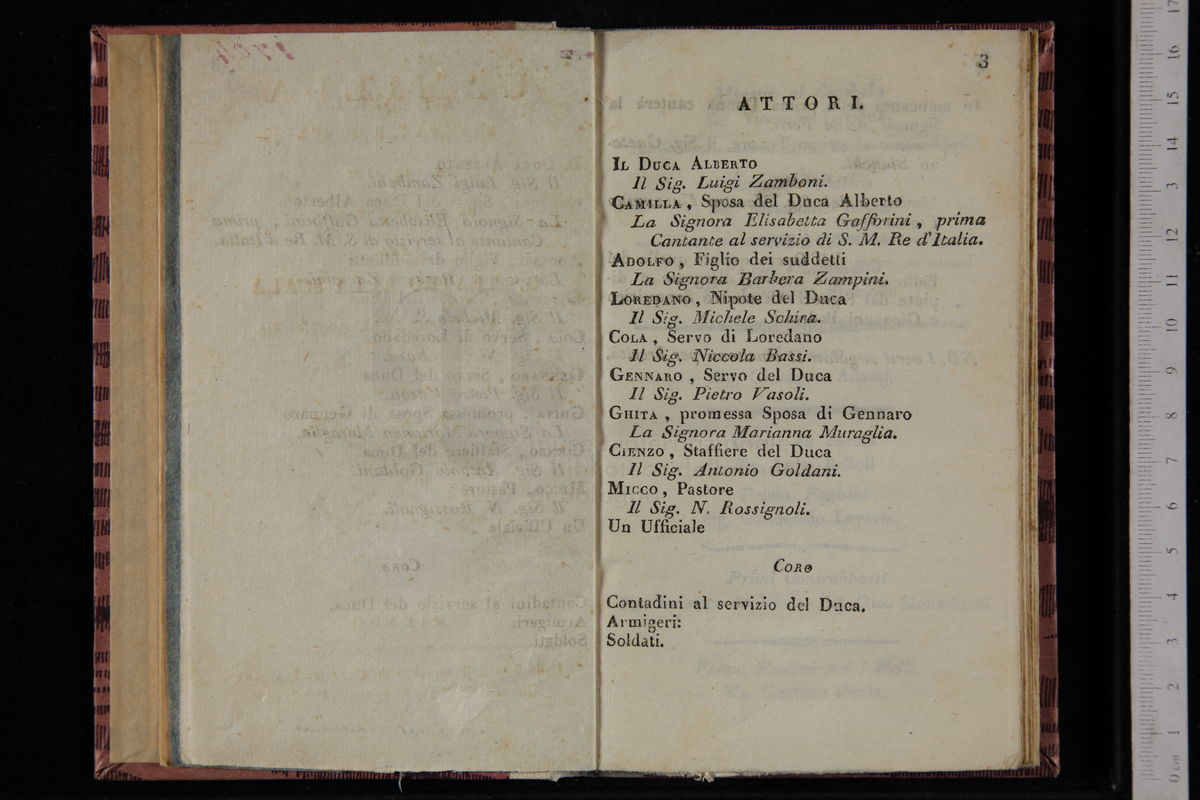 3
ATTORI.
IL DUCA ALBERTO
Il Sig. Luigi Zamboni.
CAMILLA, Sposa del Duca Alberto
La Signora Elisabetta Gafforini, prima
Cantante al servizio di S. M. Re d'Italia.
ADOLFO, Figlio dei suddetti
La Signora Barbera Zampini.
LOREDANO, Nipote del Duca
Il Sig. Michele Schira.
COLA, Servo di Loredano
Il Sig. Niccola Bassi.
GENNARO, Servo del Duca
Il Sig. Pietro Vasoli.
GHITA, promessa Sposa di Gennaro
La Signora Marianna Muraglia.
CIENZO, Staffiere del Duca
Il Sig. Antonio Goldani.
MICCO, Pastore
Il Sig. N. Rossignoli.
Un Ufficiale
CORO
Contadini al servizio del Duca.
Armigeri:
Soldati.
0 cm 1 2 3 4 5 6 7 8 9 10 11 12 13 14 15 16 17